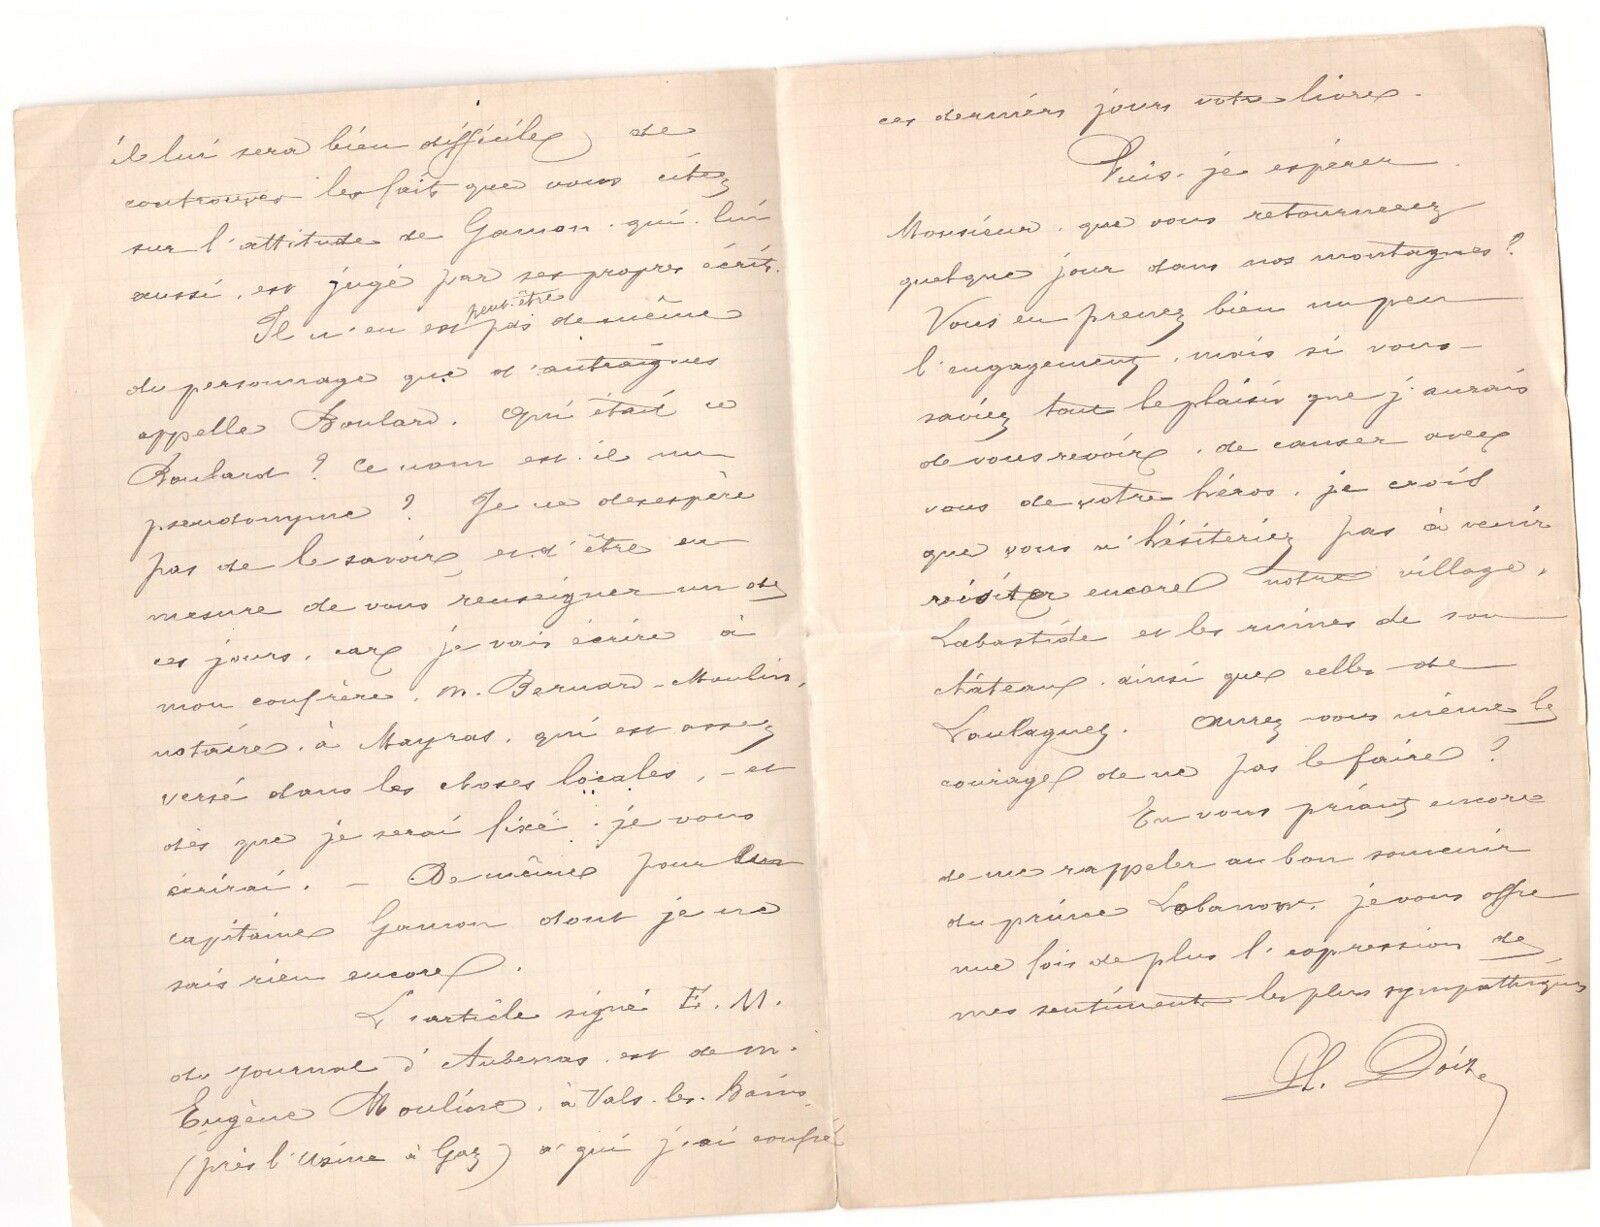 il lui sera bien difficile de
controuver les faits que vous citez
sur l'attitude de Gamon. qui. lui
aussi. est jugé par ses propres écrits.
Il n'en est peut-être pas de même
du personnage que d'Antraigues
appelle Boulard. Qui était ce
Boulard ? Ce nom est-il un
pseudonyme ? Je ne desespère
pas de le savoir et d'être en
mesure de vous renseigner un de
ces jours. car je vais écrire à
mon confrère. M. Bernard-Moulin,
notaire. à Mayras. qui est assez
versé dans les choses locales, - et
dès que je serai fixé. je vous
écrirai. - De même pour un
capitaine Gamon dont je ne
sais rien encore.
L'article signé E. M.
du journal d'Aubenas. est de M.
Eugène Mouline. à Vals-les-Bains
(près l'Usine à Gaz) à qui j'ai confié
ces derniers jours votre livre.
Puis-je espérer
Monsieur. que vous retournerez
quelque jour dans nos montagnes ?
Vous en prenez bien un peu
l'engagement. mais si vous
saviez tout le plaisir que j'aurais
de vous revoir. de causer avec
vous de votre héros. je crois
que vous n'hésiteriez pas à venir
visiter encore notre village,
Labastide et les ruines de son
château. ainsi que celles de
Loulagnez. Aurez-vous même le
courage de ne pas le faire ?
En vous priant encore
de me rappeler au bon souvenir
du prince Lobanow. je vous offre
une fois de plus l'expression de
mes sentiments les plus sympathiques